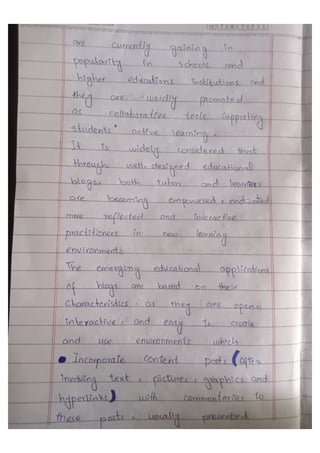 are currently gaining in
popularity in schools and
higher educations institutions and
they are weidly promoted
as collaborative tools supporting
students' active learning.
It is widely considered that
through well-designed educational
blogs, both tutors and learners
are becoming empowered, motivated
more reflected and interactive
practitioners in new learning
environments.
The emerging educational applications
of blogs are based on their
characteristics, as they are open,
interactive, and easy to create
and use environments which
• Incorporate content posts (often
involving text, pictures, graphics and
hyperlinks) with commentaries to
these posts, usually presented